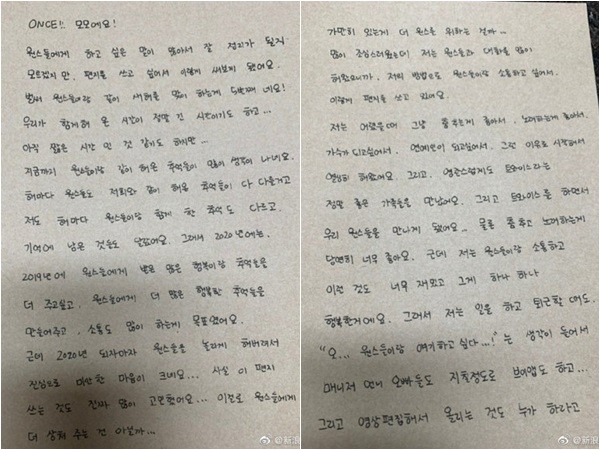 ONCE!! 모모에요!
원스들에게 하고 싶은 말이 많아서 잘 정리가 될지
모르겠지만, 편지를 쓰고 싶어서 이렇게 써보게 됐어요.
벌써 원스들이랑 같이 새해를 맞이 하는게 5번째네요!
우리가 함께해 온 시간이 정말 긴 시간이기도 하고...
아직 짧은 시간 인 것 같기도 하지만...
지금까지 원스들이랑 같이 해온 추억들이 많이 생각이 나네요.
해마다 원스도 저희와 같이 해온 추억들이 다 다를거고
저도 해마다 원스들이랑 함께 한 추억도 다르고,
기억에 남은 것들도 달랐어요. 그래서 2020년에는,
2019년에 원스들에게 받은 많은 행복이랑 추억들을
더 주고싶고, 원스들에게 더 많은 행복한 추억들을
만들어주고, 소통도 많이 하는게 목표였어요.
근데 2020년 되자마자 원스들을 놀라게 해버려서
진심으로 미안한 마음이 크네요... 사실 이 편지
쓰는 것도 진짜 많이 고민했어요... 이걸로 원스들에게
더 상처 주는 건 아닐까...
가만히 있는게 더 원스를 위하는 걸까...
많이 조심스러웠는데 저는 원스들과 대화를 많이
해왔으니까, 저의 방법으로 원스들이랑 소통하고 싶어서,
이렇게 편지를 쓰고 있어요.
저는 어렸을때 그냥 춤추는게 좋아서, 노래하는게 좋아서,
가수가 되고싶어서, 연예인이 되고싶어서, 그런 이유로 시작해서
열심히 해왔어요. 그리고, 영광스럽게도 트와이스라는
정말 좋은 가족들을 만났어요. 그리고 트와이스를 하면서
우리 원스들을 만나게 됐어요.. 물론 춤추고 노래하는게
당연히 너무 좋아요. 근데 저는 원스들이랑 소통하고
이런 것도 너무 재밌고 그게 하나 하나
행복한거에요. 그래서 저는 일을 하고 퇴근할 때도,
"오... 원스들이랑 얘기하고 싶다...!" 는 생각이 들어서
매니저 언니 오빠들도 지칠정도로 브이앱도 하고...
그리고 영상편집해서 올리는 것도 누가 하라고
@新浪
@新浪